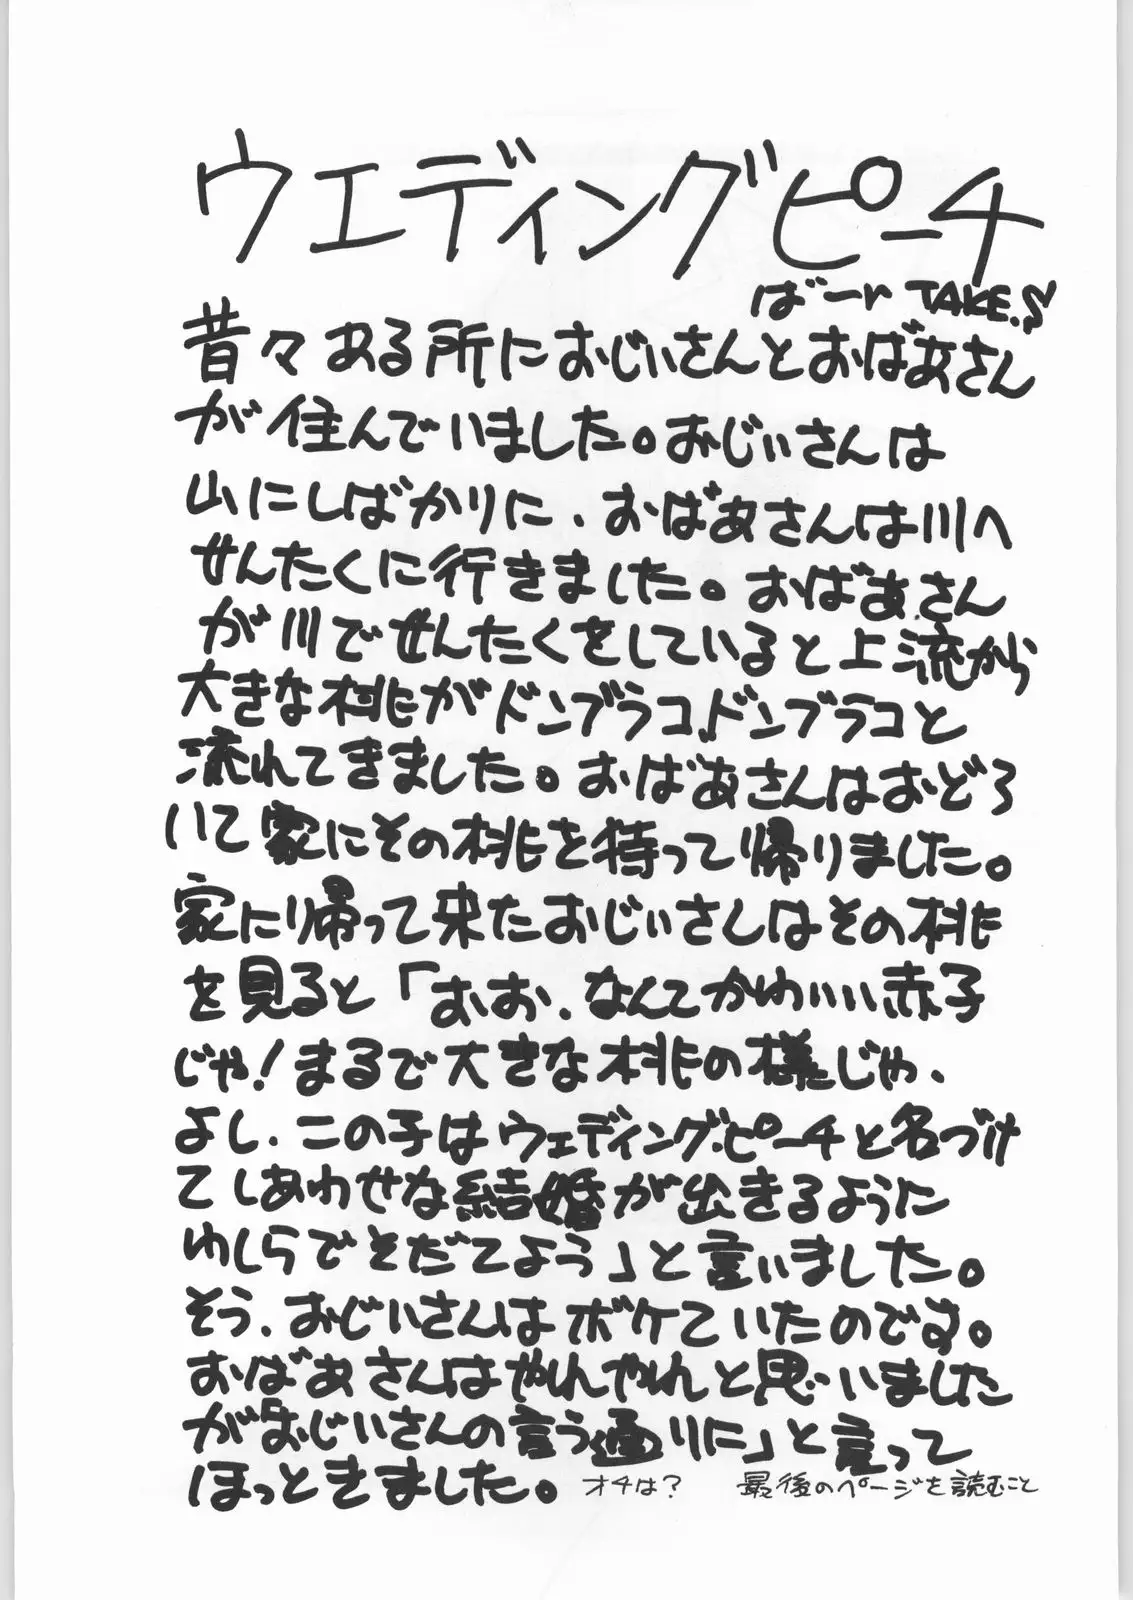 ウエディングピーチ
ばーい TAKE.S
昔々ある所におじぃさんとおばあさん
が住んでいました。おじぃさんは
山にしばかりに、おばあさんは川へ
せんたくに行きました。おばあさん
が川でせんたくをしていると上流から
大きな桃がドンブラコ、ドンブラコと
流れてきました。おばあさんはおどろ
いて家にその桃を持って帰りました。
家に帰って来たおじぃさんはその桃
を見ると「おお、なんてかわいい赤子
じゃ!まるで大きな桃の様じゃ、
よし、この子はウェディング・ピーチと名づけ
てしあわせな結婚が出きるように
わしらでそだてよう」と言いました。
そう、おじぃさんはボケていたのです。
おばあさんはやれやれと思いました
が「おじいさんの言う通りに」と言って
ほっときました。オチは? 最後のページを読むこと